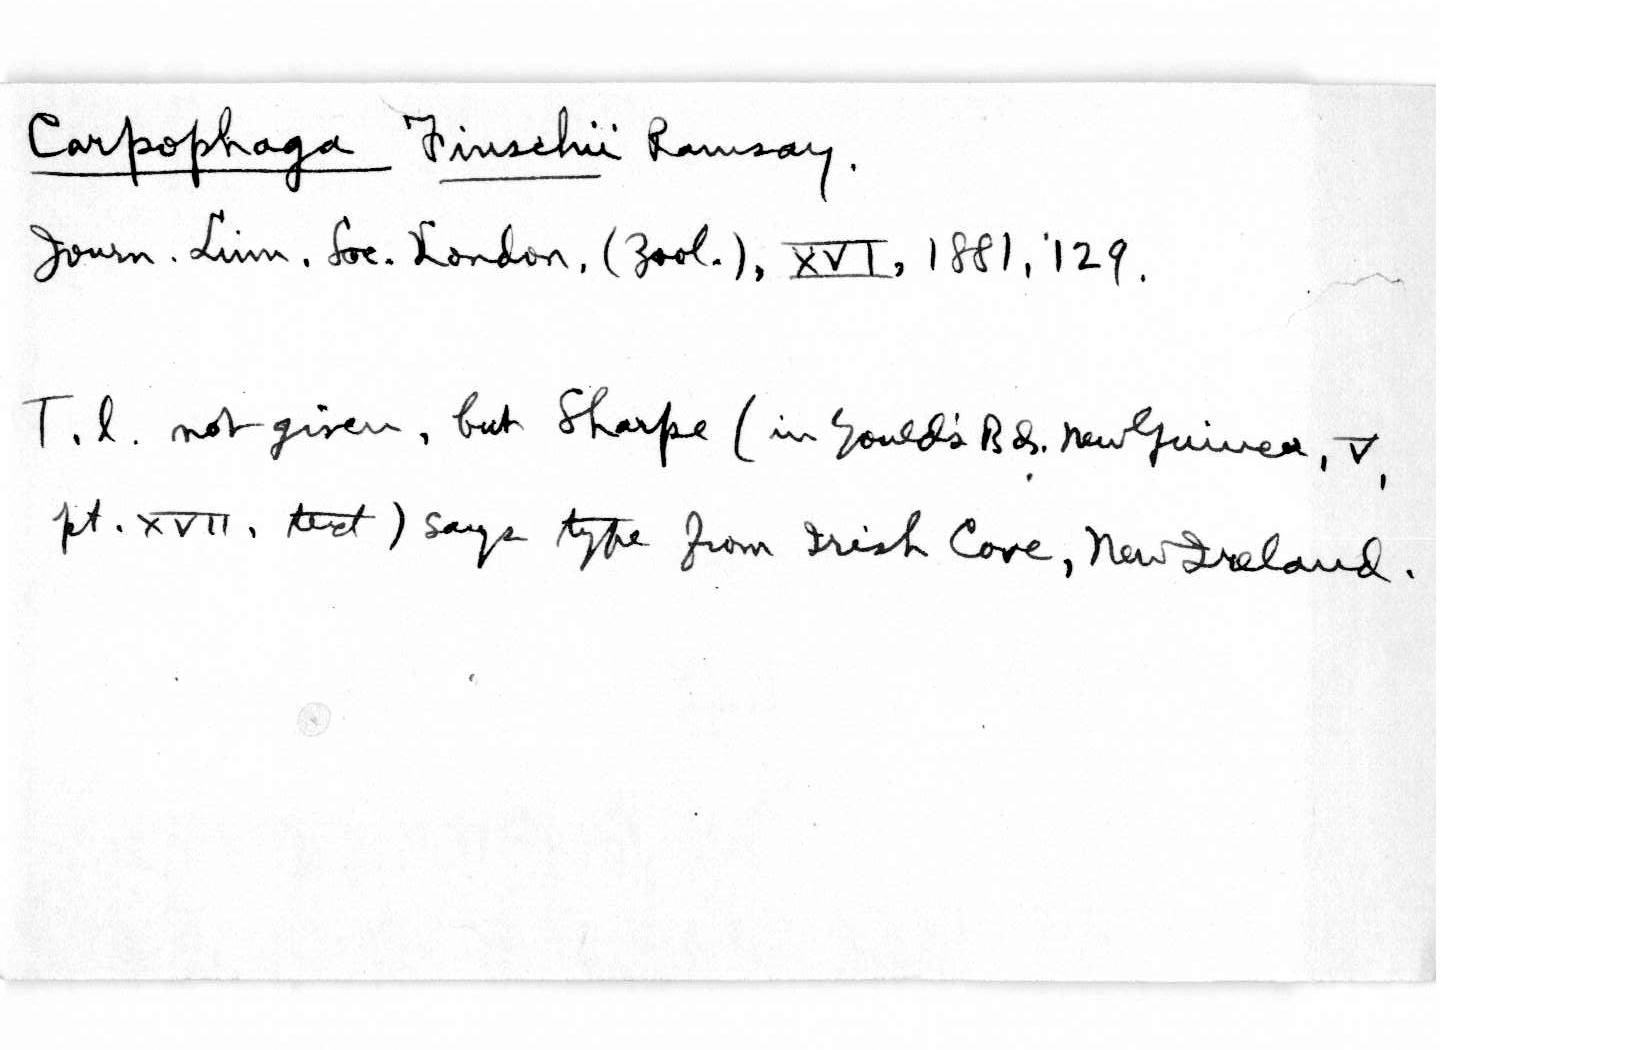 Carpophaga Finschii Ramsay.
Journ. Linn. Soc. London, (Zool.), XVI, 1881, 129.
T. l. not given, but Sharpe (in Gould's Bds. New Guinea, V,
pt. XVII, text) says type from Irish Cove, New Ireland.